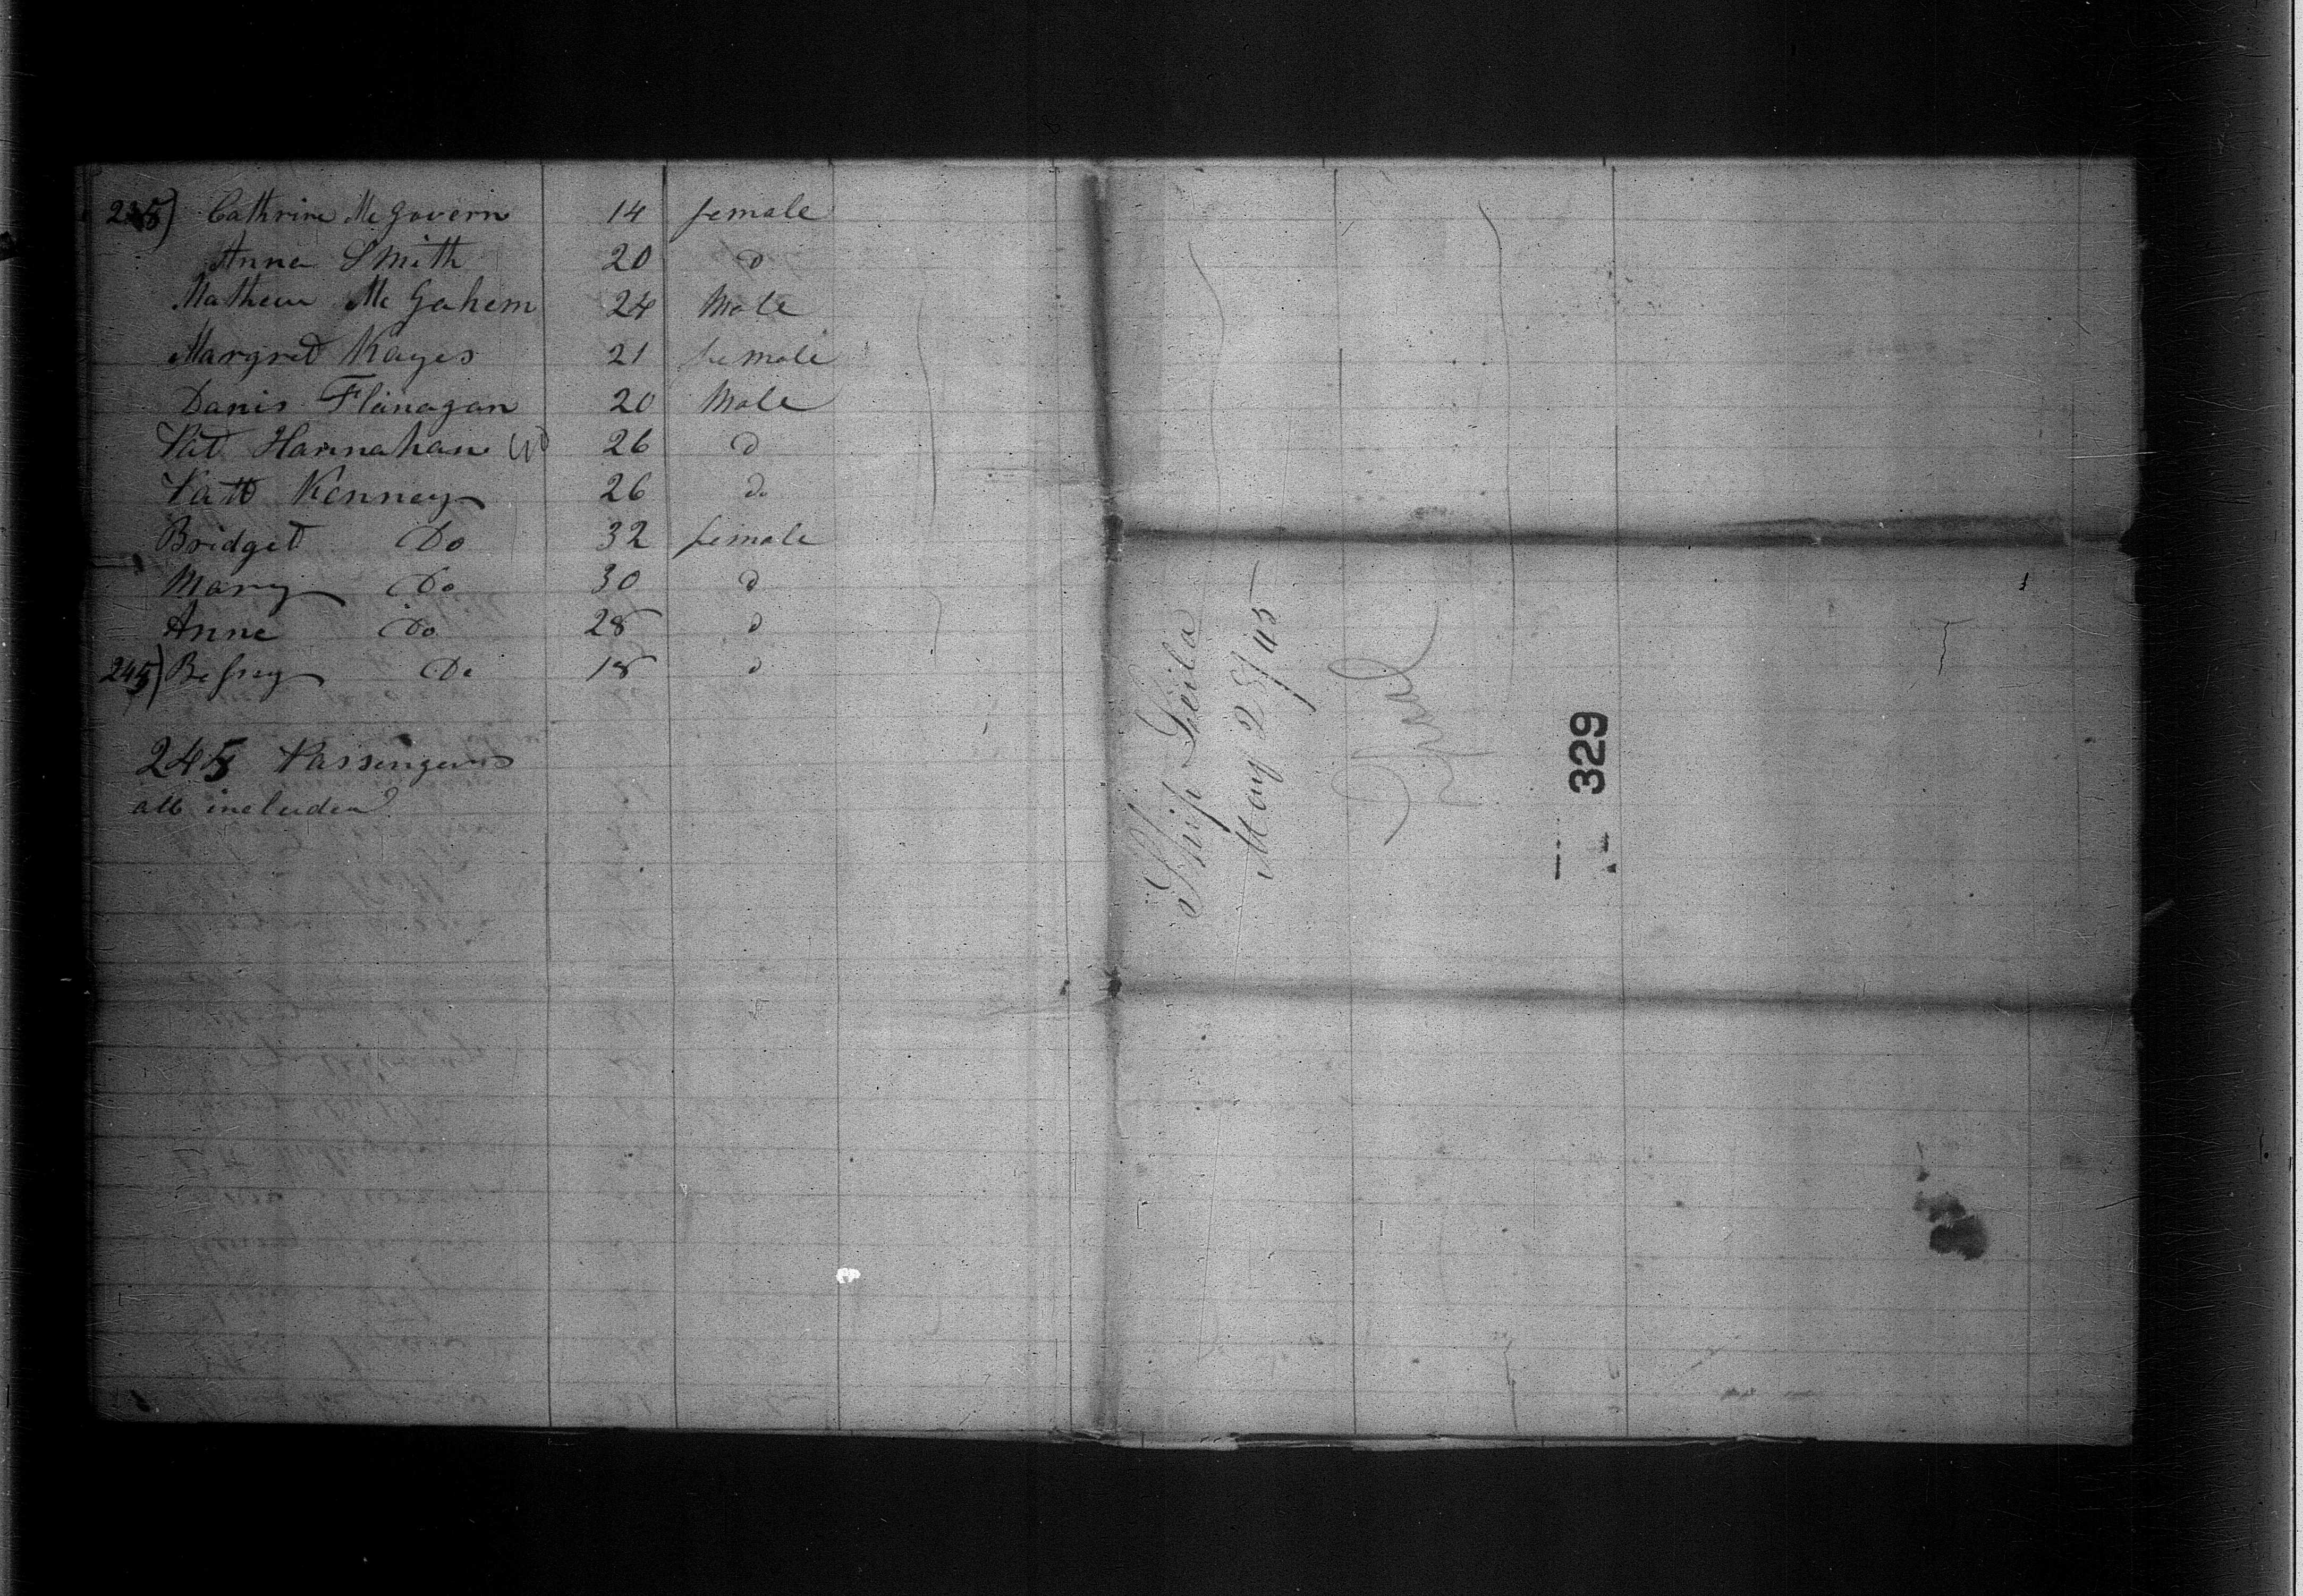 235) Cathrine Mc Govern 14 female
Anne Smith 20 d
Mathew Mc Gahem 24 Male
Margret Kayes 21 female
Danis Flanagan 20 Male
Pat Hannahan 26 d
Patt Kenney 26 do
Bridget Do 32 female
Mary Do 30 d
Anne Do 28 d
245) Bessey Do 18 d
245 Passengers
all included
Ship Leila
May 28/45
329